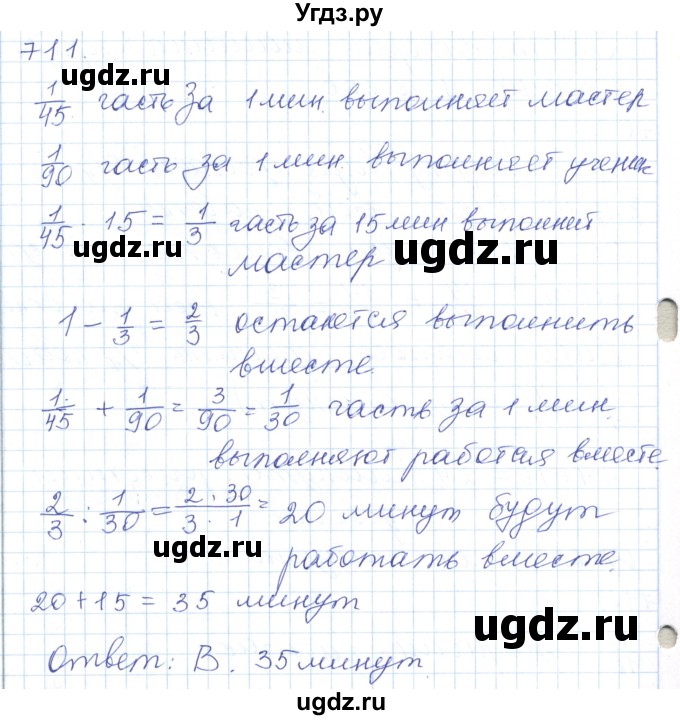 Угдз.ру
711.
ugdz.ru
1/45 часть за 1 мин. выполняет мастер
1/90 часть за 1 мин. выполняет ученик
1/45 · 15 = 1/3 часть за 15 мин выполнит
ugdz.ru
мастер
ugdz.ru
1 - 1/3 = 2/3 останется выполнить
вместе.
ugdz.ru
1/45 + 1/90 = 3/90 = 1/30 часть за 1 мин.
выполняют работая вместе.
ugdz.ru
2/3 : 1/30 = 2·30/3·1 = 20 минут будут
ugdz.ru
работать вместе.
20 + 15 = 35 минут
ugdz.ru
Ответ: В. 35 минут
ugdz.ru
ugdz.ru